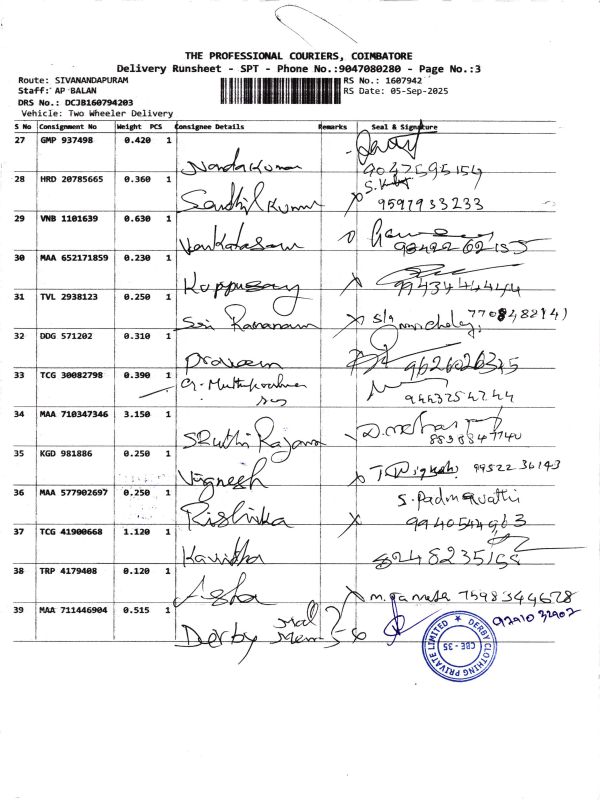 THE PROFESSIONAL COURIERS, COIMBATORE
Delivery Runsheet - SPT - Phone No.:9047080280 - Page No.:3
Route: SIVANANDAPURAM RS No.: 1607942
Staff: AP BALAN RS Date: 05-Sep-2025
DRS No.: DCJB160794203
Vehicle: Two Wheeler Delivery
S No Consignment No Weight PCS Consignee Details Remarks Seal & Signature
27 GMP 937498 0.420 1
Nandakumar 9047595154
28 HRD 20785665 0.360 1
Senthil Kumar 9597933233
29 VNB 1101639 0.630 1
Venkatasam
30 MAA 652171859 0.230 1
Kuppusay 9943444444
31 TVL 2938123 0.250 1
Sri Ramanam
32 DDG 571202 0.310 1
Praveen 9626026345
33 TCG 30082798 0.390 1
34 MAA 710347346 3.150 1
Sruthi Rajann
35 KGD 981886 0.250 1
Vignesh 99522 36143
36 MAA 577902697 0.250 1
S. Padmavathi
Rishika 9940544963
37 TCG 41900668 1.120 1
Kavitha 8248235158
38 TRP 4179408 0.120 1
Asha 7598344678
39 MAA 711446904 0.515 1
Derby 9291032902
DERBY CLOTHING PRIVATE LIMITED
CBE - 35